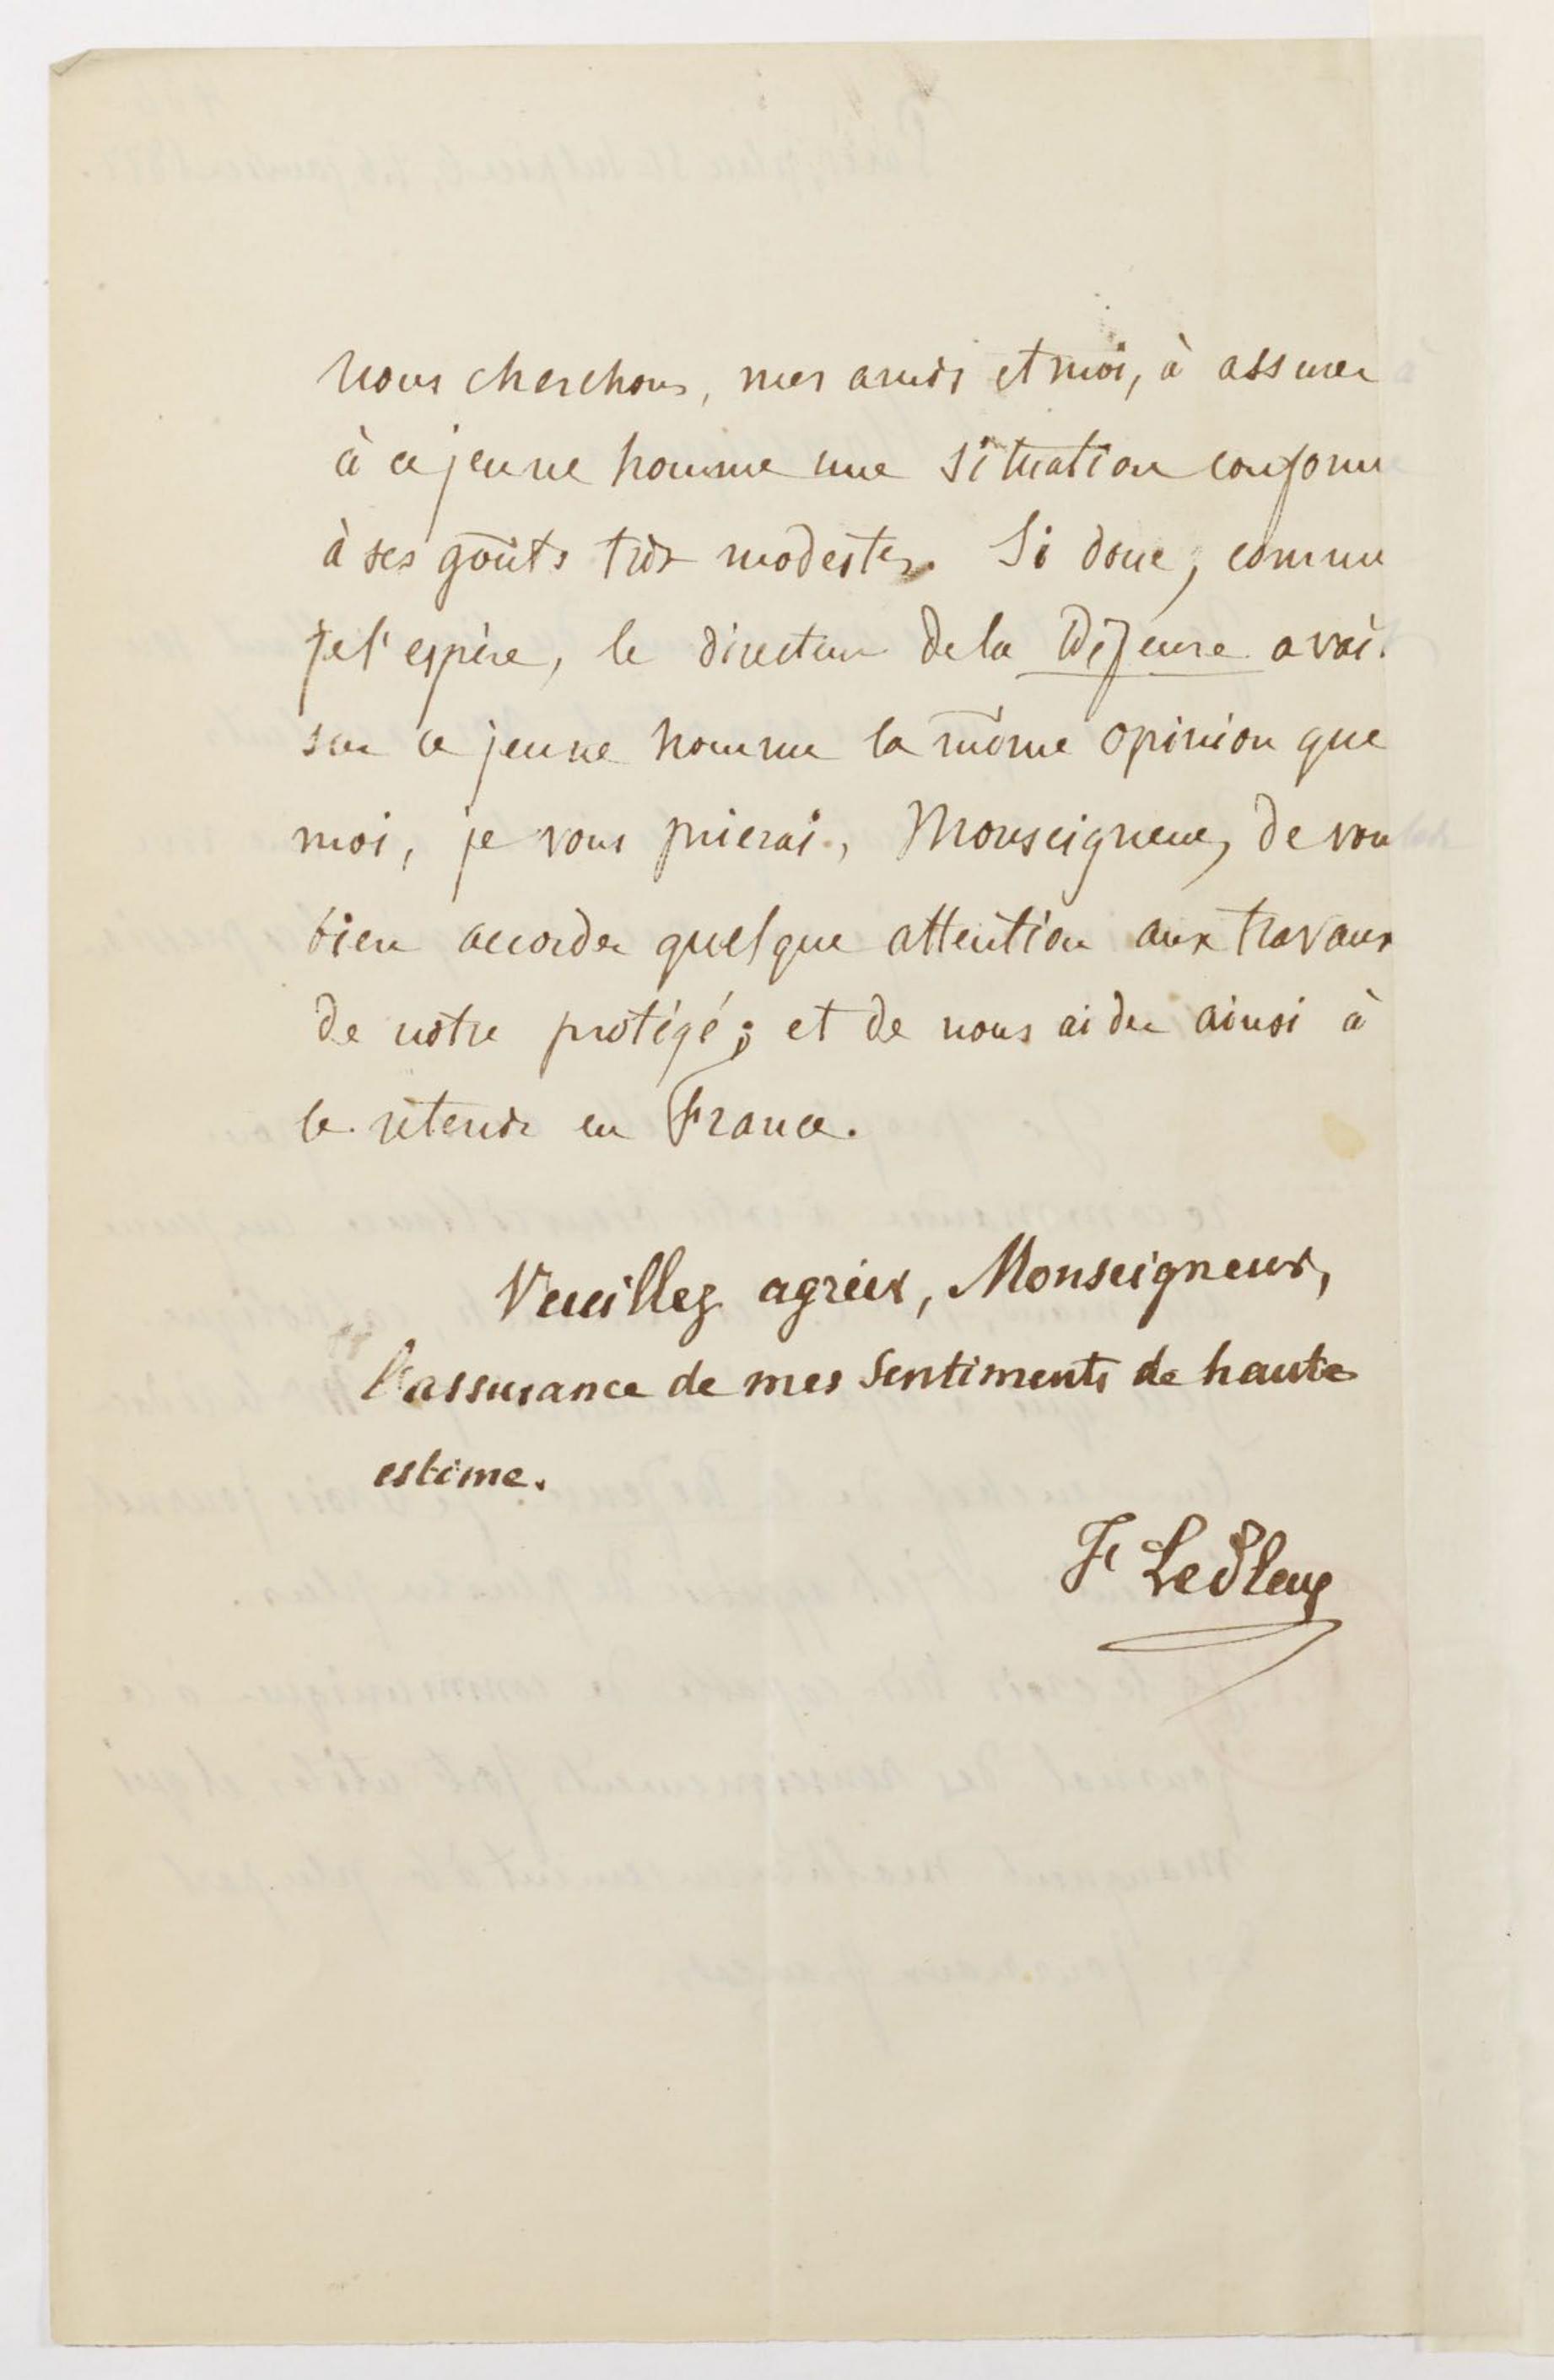 nous cherchons, mes amis et moi, à assurer
à ce jeune homme une situation conforme
à ses goûts très modestes. Si donc, comme
je l'espère, le directeur de la Défense avai
sur ce jeune homme la même opinion que
moi, je vous prierai, Monseigneur, de vou
bien accorder quelque attention aux travaux
de notre protégé; et de nous aider ainsi à
le retenir en France.
Veuillez agréer, Monseigneur,
l'assurance de mes sentiments de haute
estime.
F Le Play